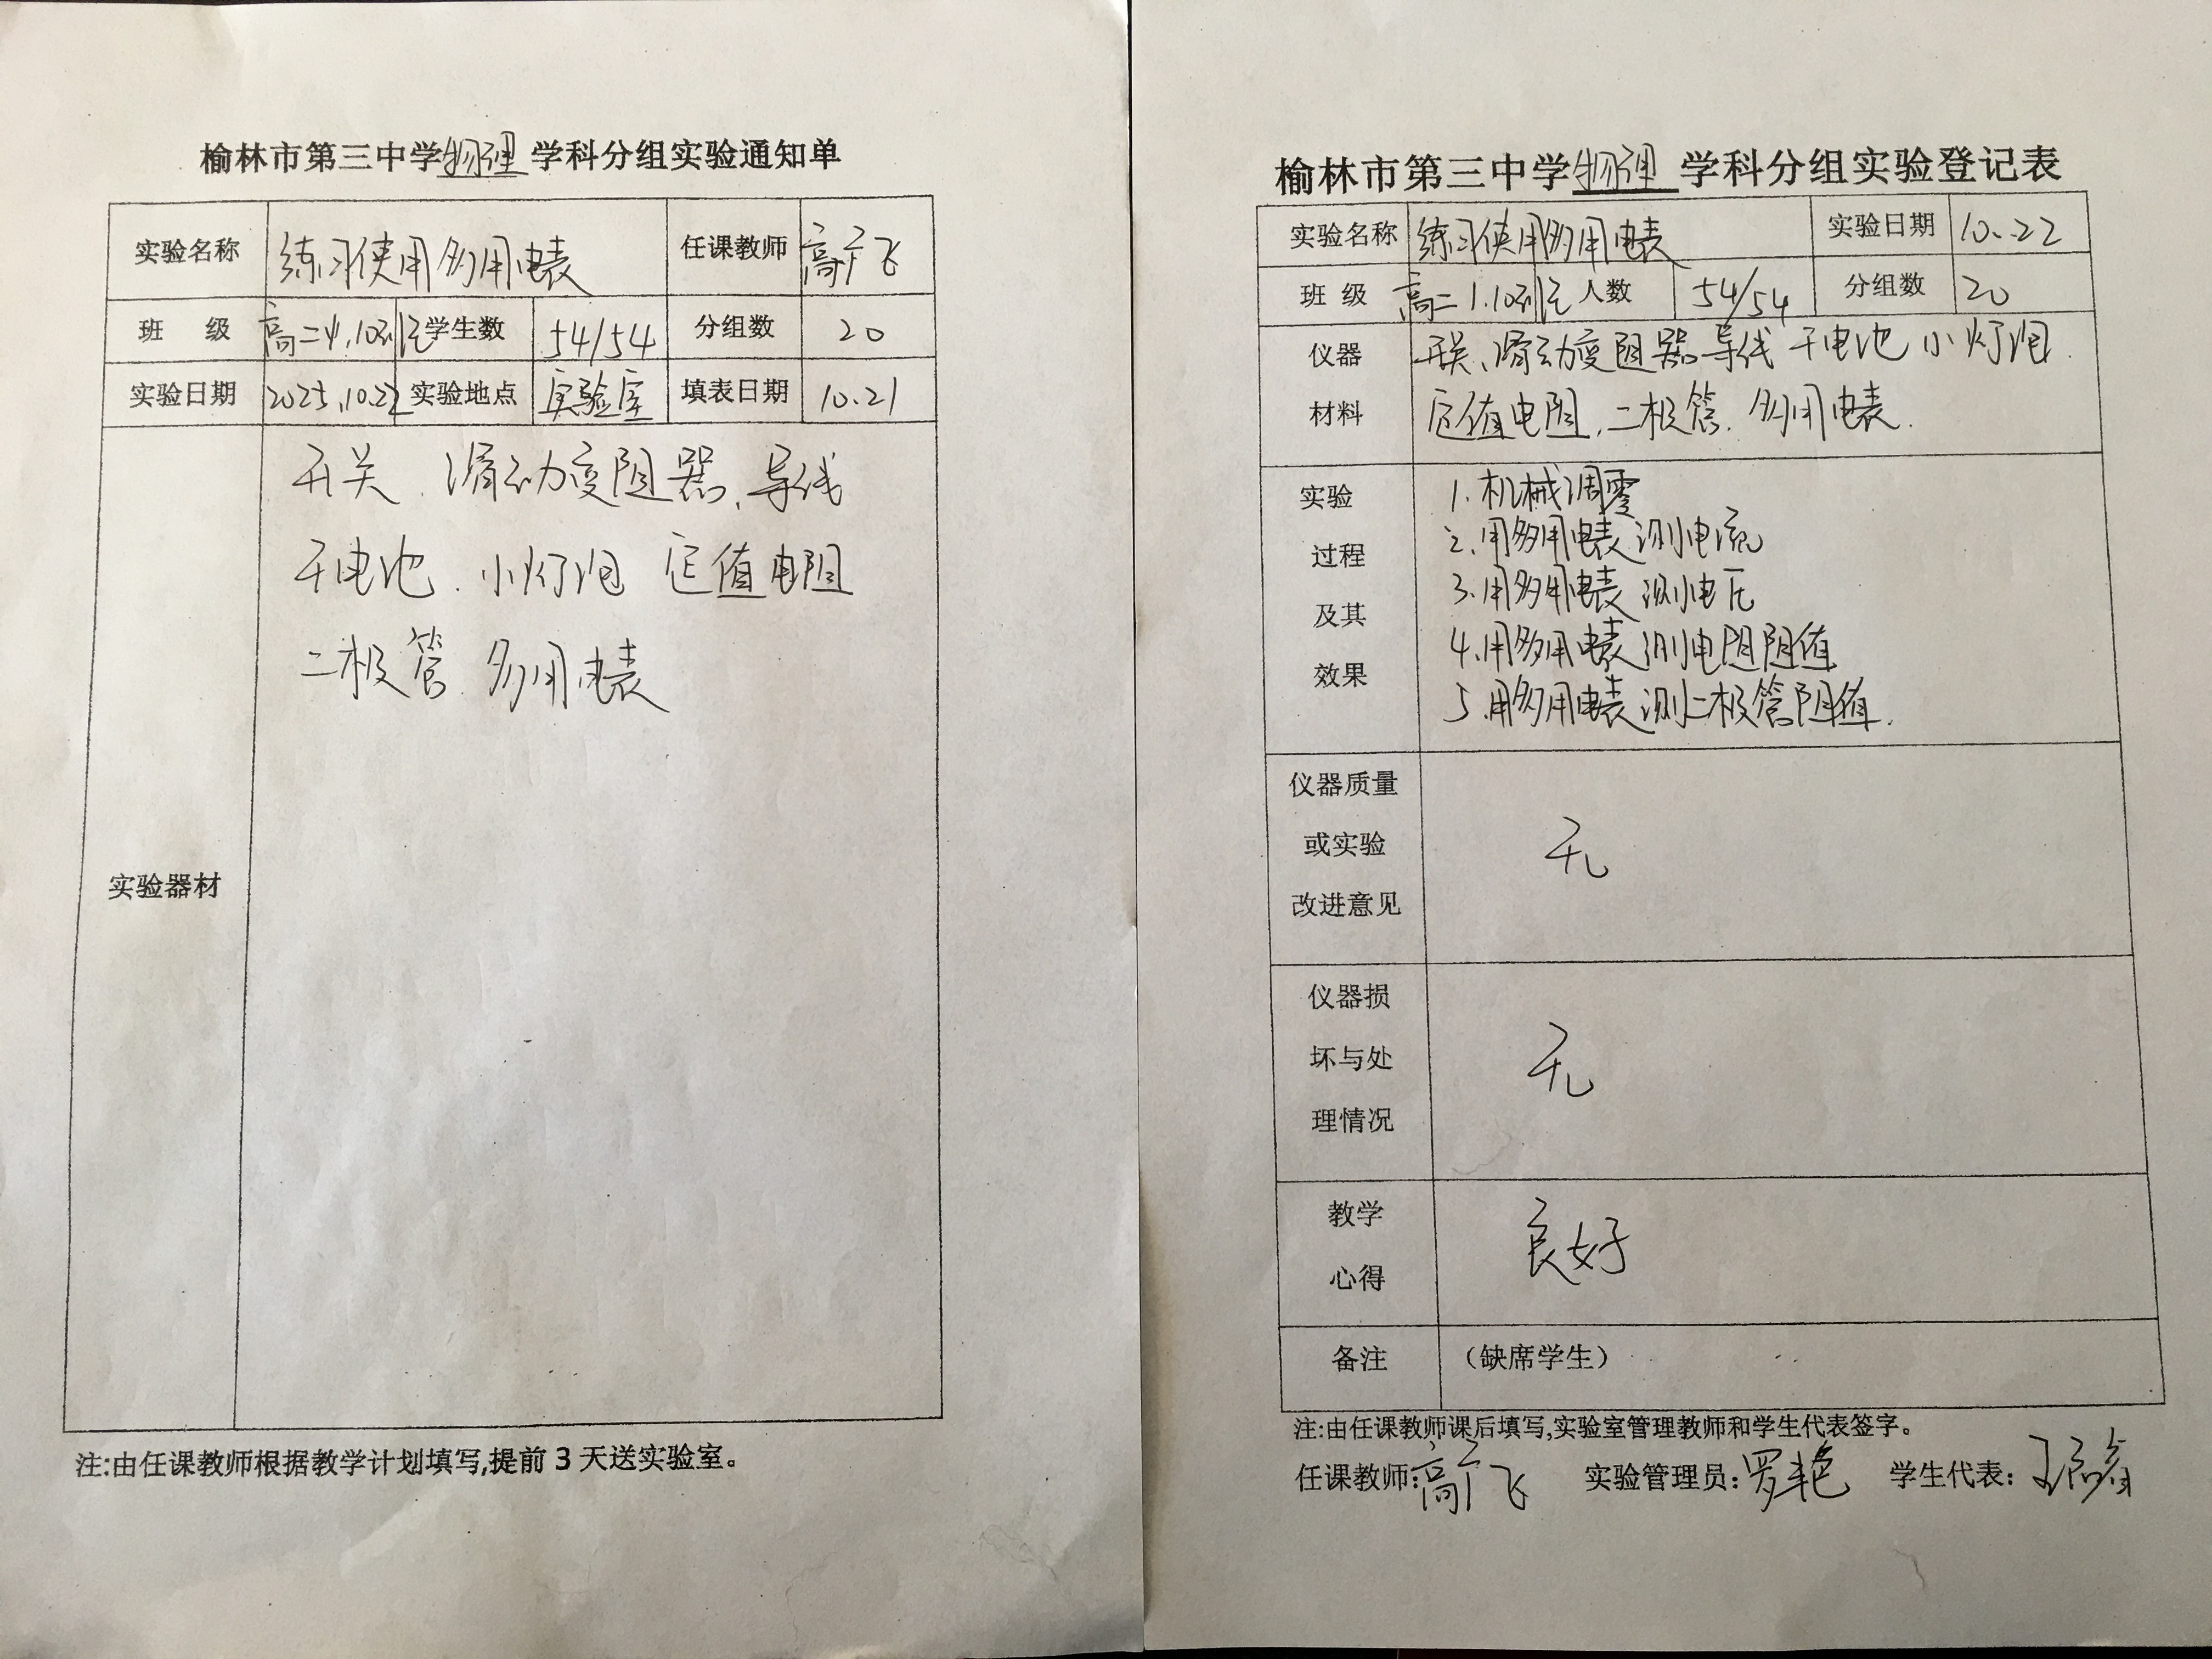 榆林市第三中学物理学科分组实验通知单
实验名称 练习使用多用电表 任课教师 高广飞
班 级 高二 学生数 54/54 分组数 20
实验日期 2025.10.22 实验地点 实验室 填表日期 10.21
实验器材
开关、滑动变阻器、导线
干电池、小灯泡 定值电阻
二极管 多用电表
注:由任课教师根据教学计划填写,提前3天送实验室。
榆林市第三中学物理学科分组实验登记表
实验名称 练习使用多用电表 实验日期 10.22
班 级 高二1.10 人数 54/54 分组数 20
仪器
材料
开关、滑动变阻器 导线 干电池 小灯泡.
定值电阻、二极管、多用电表.
实验
过程
及其
效果
1.机械调零
2.用多用电表测电流
3.用多用电表测电压
4.用多用电表测电阻阻值
5.用多用电表测二极管阻值.
仪器质量
或实验
改进意见
无
仪器损
坏与处
理情况
无
教学
心得
良好
备注 (缺席学生)
注:由任课教师课后填写,实验室管理教师和学生代表签字。
任课教师:高广飞 实验管理员:罗艳 学生代表: